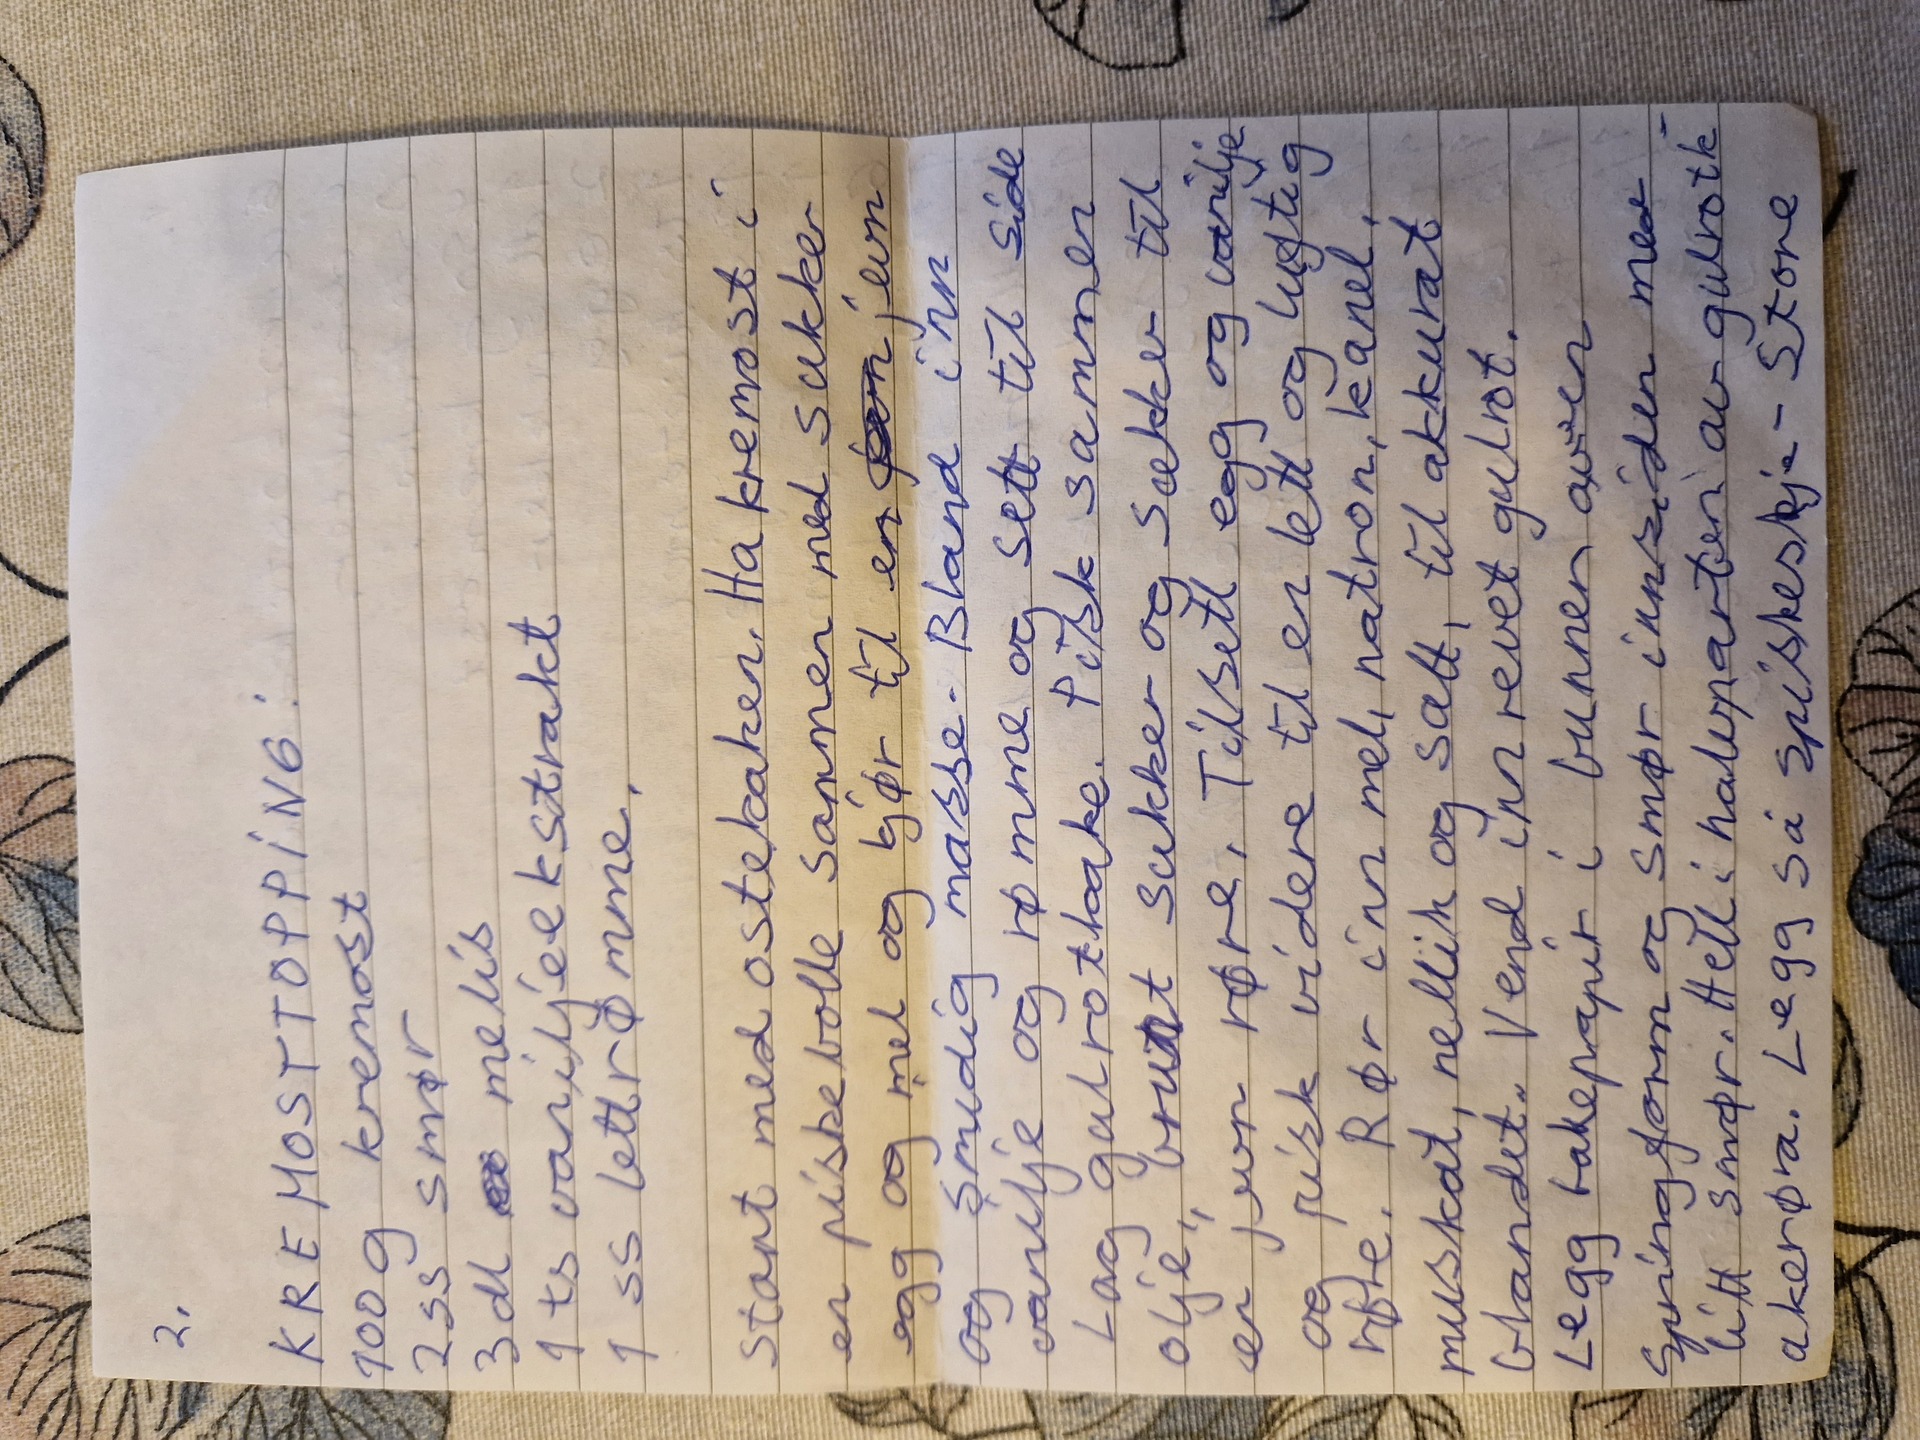 2.
KREMOSTTOPPING:
100g kremost
2ss smør
3dl melis
1 ts vaniljeekstrakt
1 ss lettrømme.
Start med ostekaken. Ha kremost i
en piskebolle sammen med sukker
egg og mel og kjør til en jevn
og smidig masse. Bland inn
vanilje og rømme og sett til side
Lag gulrotkake. Pisk sammen
olje, brunt sukker og sukker til
en jevn røre. Tilsett egg og vanilje
og pisk videre til en lett og luftig
røre. Rør inn mel, natron, kanel,
muskat, nellik og salt, til akkurat
blandet. Vend inn revet gulrot.
Legg bakepapir i bunnen av en
springform og smør innsiden med
litt smør. Hell i halvparten av gulrotk
akerøra. Legg så spiskeskje- Store